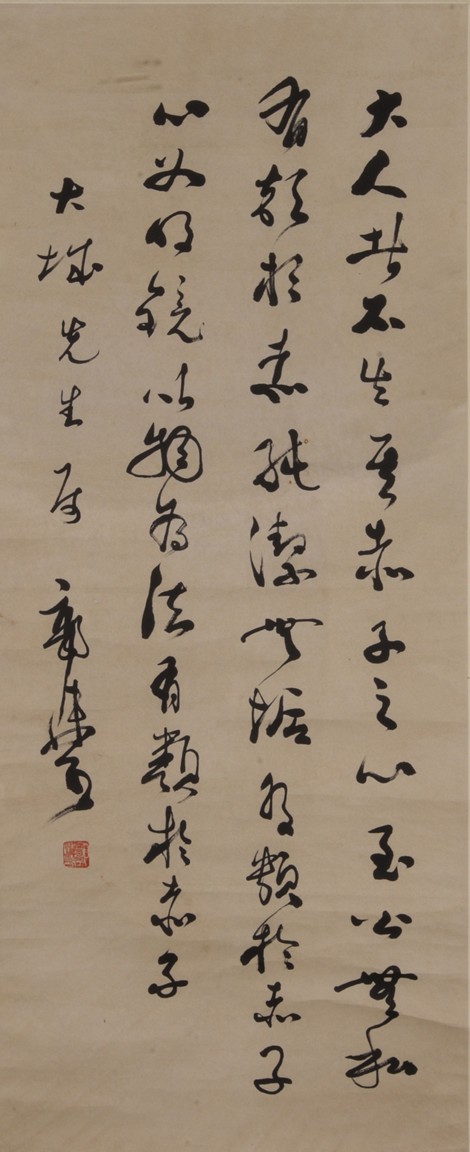 大人者不失其赤子之心至公無私
有類於赤純潔無垢有類於赤子
心如明鏡以物為法有類於赤子
大城先生属 郭沫若